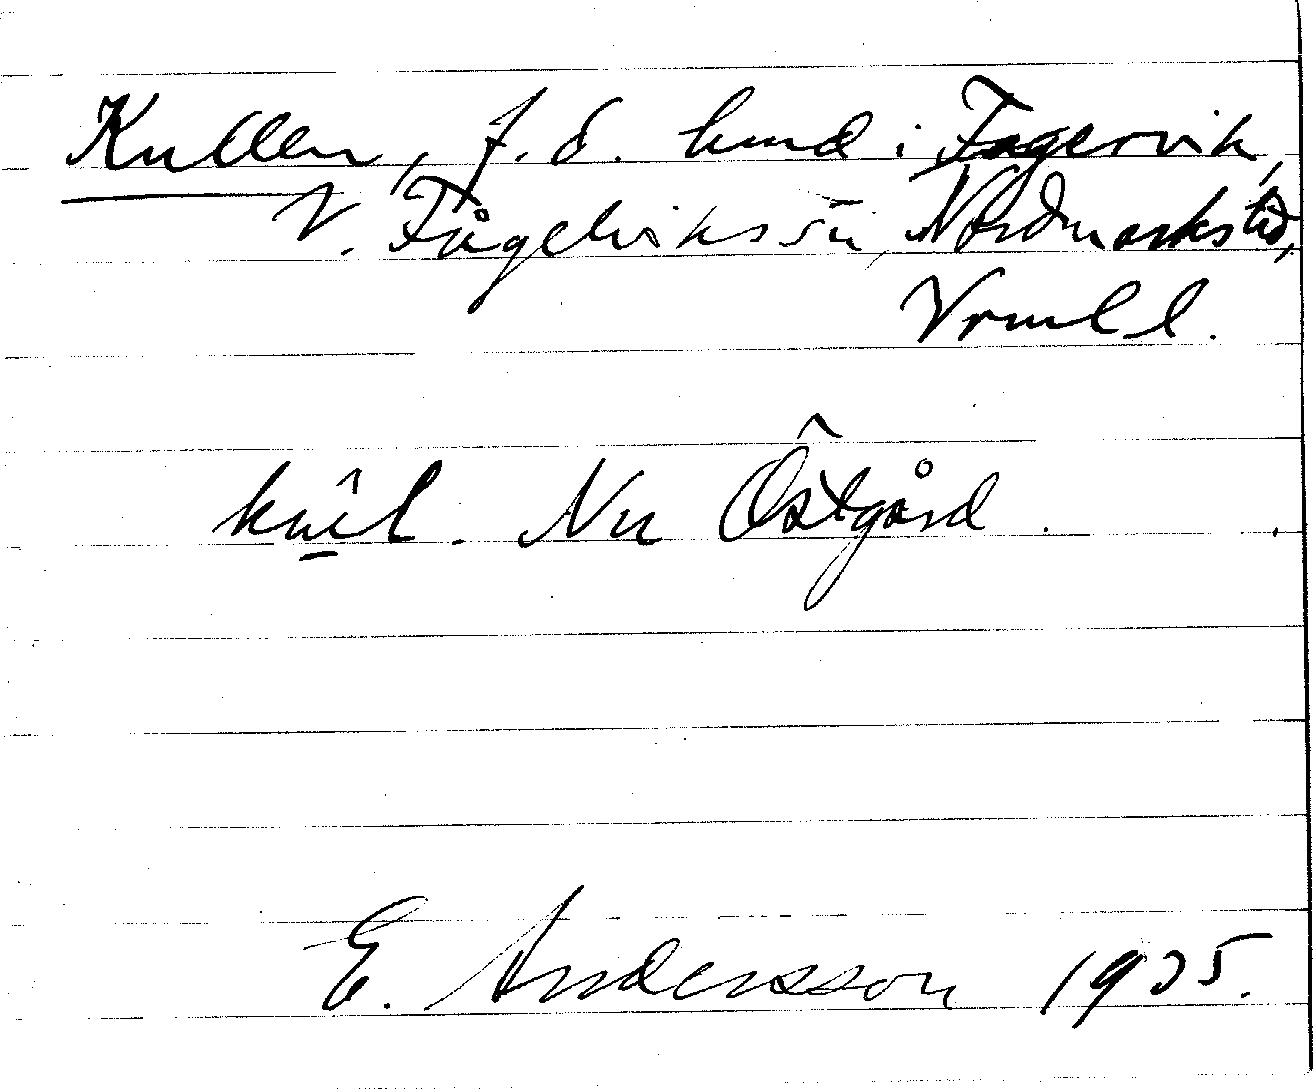 Kullen, f.d. lund i Fagervik,
V. Fågelviks sn, Nordmarks hd,
Vrml l.
Nu Östgård.
E. Andersson 1935.